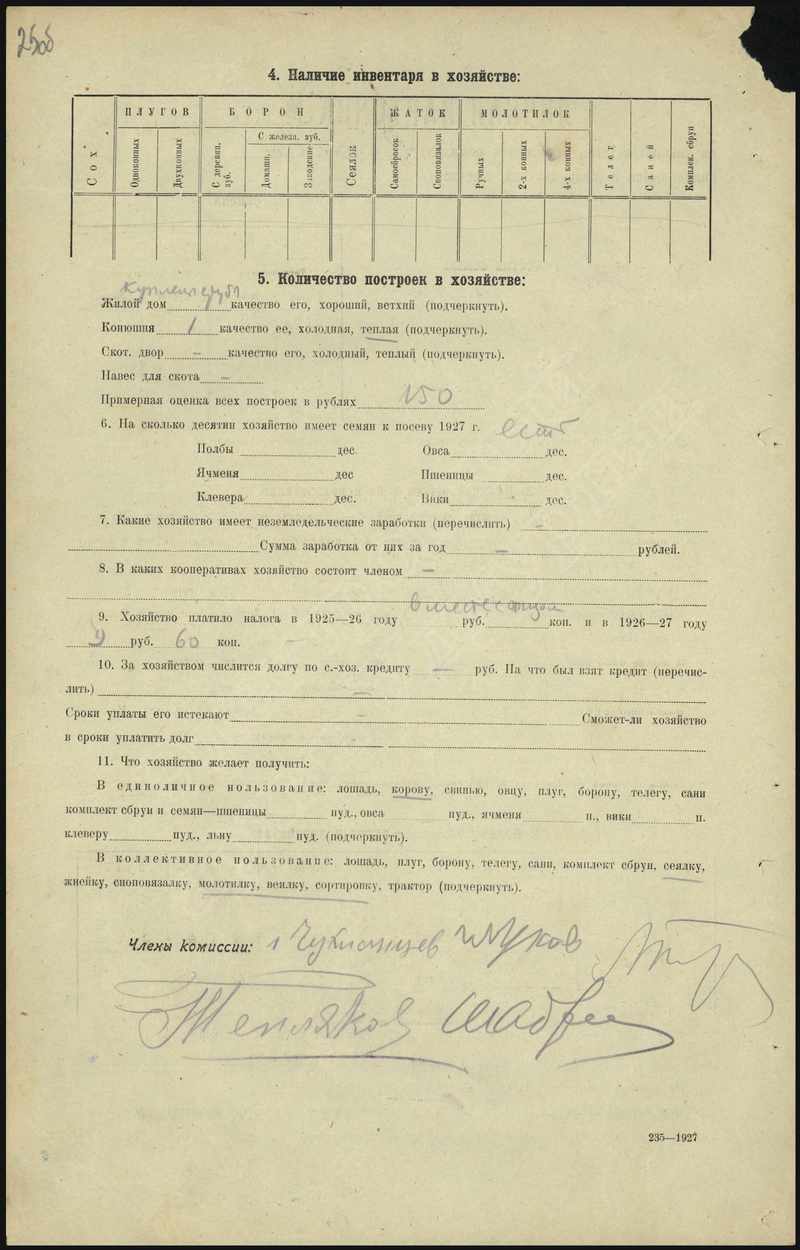 4. Наличие инвентаря в хозяйстве:
ПЛУГОВ БОРОН ЖАТОК МОЛОТИЛОК
С железн. зуб.
Сох Одноконных Двухконных С деревян. зуб. Домашн. Заводские Сеялок Самосбросок Сноповязалок Ручных 2-х конных 4-х конных Телег Саней Комплек. сбруи
5. Количество построек в хозяйстве:
Жилой дом 1 качество его, хороший, ветхий (подчеркнуть).
Конюшня 1 качество ее, холодная, теплая (подчеркнуть).
Скот. двор — качество его, холодный, теплый (подчеркнуть).
Навес для скота —
Примерная оценка всех построек в рублях 150
6. На сколько десятин хозяйство имеет семян к посеву 1927 г. есть
Полбы дес. Овса дес.
Ячменя дес Пшеницы дес.
Клевера дес. Вики дес.
7. Какие хозяйство имеет неземледельческие заработки (перечислить) —
Сумма заработка от них за год — рублей.
8. В каких кооперативах хозяйство состоит членом —
9. Хозяйство платило налога в 1925—26 году вместе с отцом руб. коп. и в 1926—27 году
9 руб. 60 коп.
10. За хозяйством числится долгу по с.-хоз. кредиту — руб. На что был взят кредит (перечис-
лить) —
Сроки уплаты его истекают — Сможет-ли хозяйство
в сроки уплатить долг
11. Что хозяйство желает получить:
В единоличное пользование: лошадь, корову, свинью, овцу, плуг, борону, телегу, сани
комплект сбруи и семян—пшеницы пуд., овса пуд., ячменя п., вики п.
клеверу пуд., льну пуд. (подчеркнуть).
В коллективное пользование: лошадь, плуг, борону, телегу, сани, комплект сбруи, сеялку,
жнейку, сноповязалку, молотилку, веялку, сортировку, трактор (подчеркнуть).
Члены комиссии:
Тепляков
235—1927